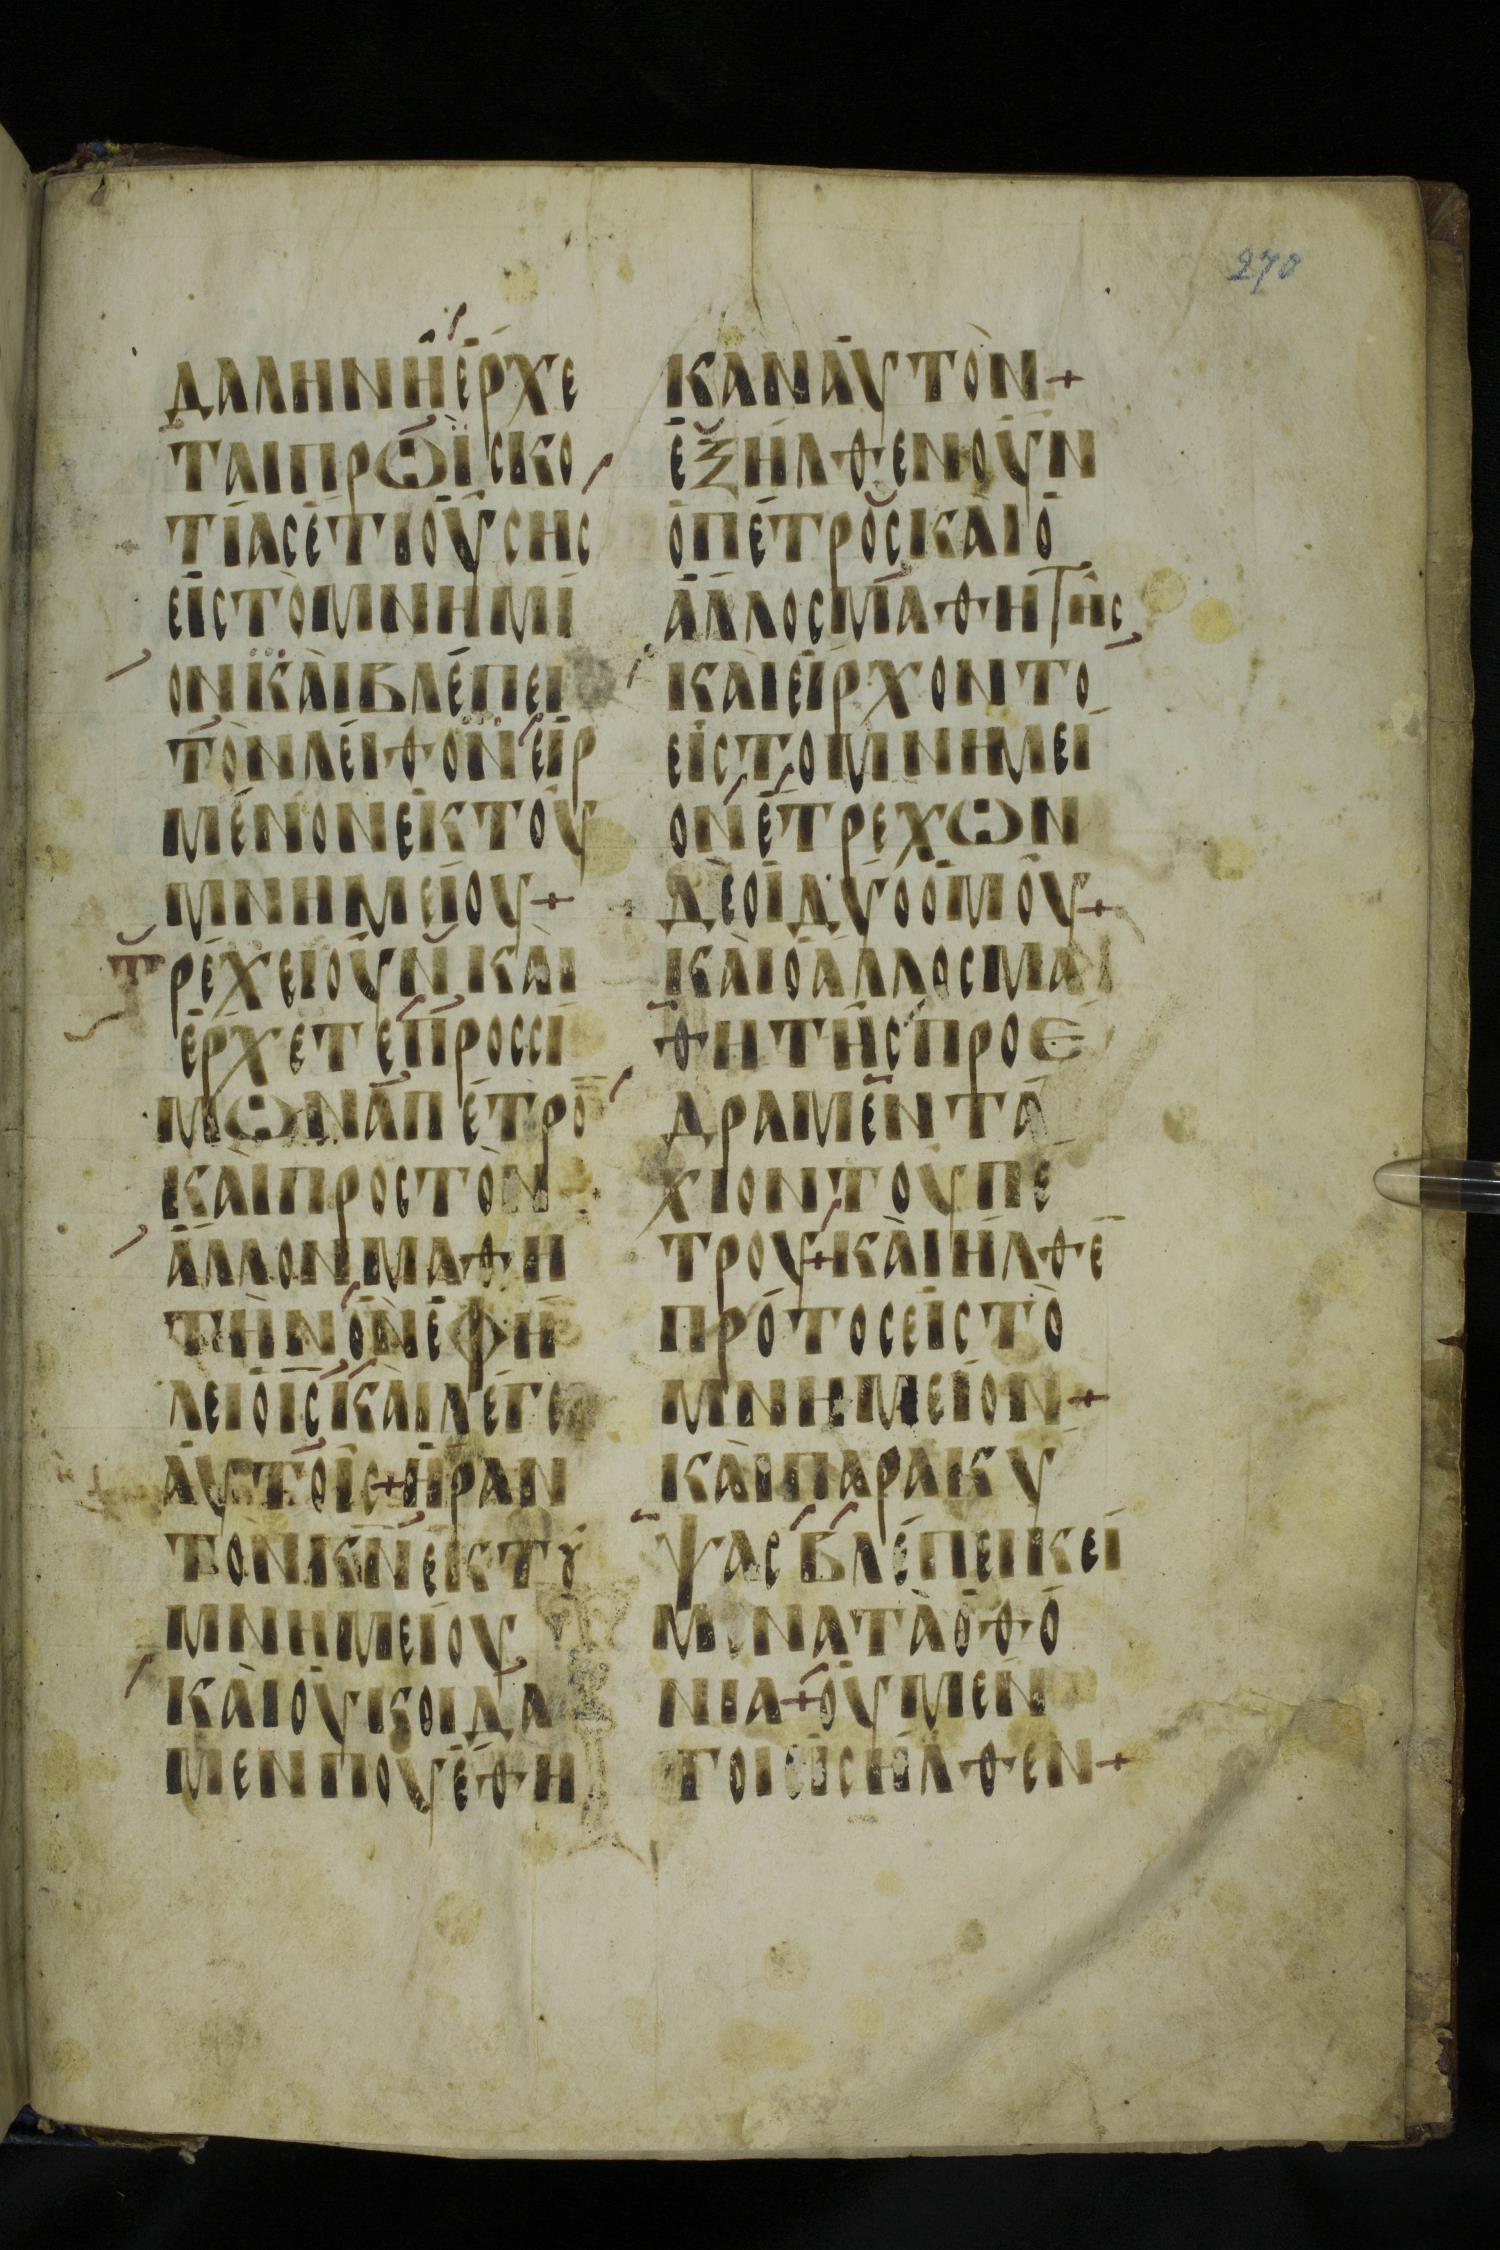 270
ΔΑΛΗΝΗ̂ΕΡΧΕ
ΤΑΙΠΡΩΪΣΚΟ
ΤΙΑΣΕΤΙΟΥΣΗΣ
ΕΙΣΤΟΜΝΗΜΙ
ΟΝΚΑΙΒΛΕΠΕΙ
ΤΟΝΛΕΙΘΟΝΕΙΡ
ΜΕΝΟΝΕΚΤΟΥ
ΜΝΗΜΕΙΟΥ+
ΤΡΕΧΕΙΟΥΝΚΑΙ
ΕΡΧΕΤΕΠΡΟΣΣΙ
ΜΩΝΑΠΕΤΡΟ̅
ΚΑΙΠΡΟΣΤΟΝ
ΑΛΛΟΝΜΑΘΗ
ΤΗΝΟΝΕΦΗ
ΛΕΙΟΙ̅Σ̅ΚΑΙΛΕΓΕΙ
ΑΥΤΟΙΣ+ΗΡΑΝ
ΤΟΝΚ̅Ν̅ΕΚΤȢ
ΜΝΗΜΕΙΟΥ
ΚΑΙΟΥΚΟΙΔΑ
ΜΕΝΠΟΥΕΘΗ
ΚΑΝΑΥΤΟΝ+
ΕΞΗΛΘΕΝΟΥΝ
ΟΠΕΤΡΟΣΚΑΙΟ
ΑΛΛΟΣΜΑΘΗΤΗΣ
ΚΑΙΕΙΡΧΟΝΤΟ
ΕΙΣΤΟΜΝΗΜΕΙ
ΟΝΕΤΡΕΧΩΝ
ΔΕΟΙΔΥΟΟΜΟΥ+
ΚΑΙΟΑΛΛΟΣΜΑ
ΘΗΤΗΣΠΡΟΕ
ΔΡΑΜΕΝΤΑ
ΧΙΟΝΤΟΥΠΕ
ΤΡΟΥ+ΚΑΙΗΛΘΕ
ΠΡΟΤΟΣΕΙΣΤΟ
ΜΝΗΜΕΙΟΝ+
ΚΑΙΠΑΡΑΚΥ
ΨΑΣΒΛΕΠΕΙΚΕΙ
ΜΕΝΑΤΑΟΘΟ
ΝΙΑ+ΟΥΜΕΝ
ΤΟΙΕΙΣΗΛΘΕΝ+